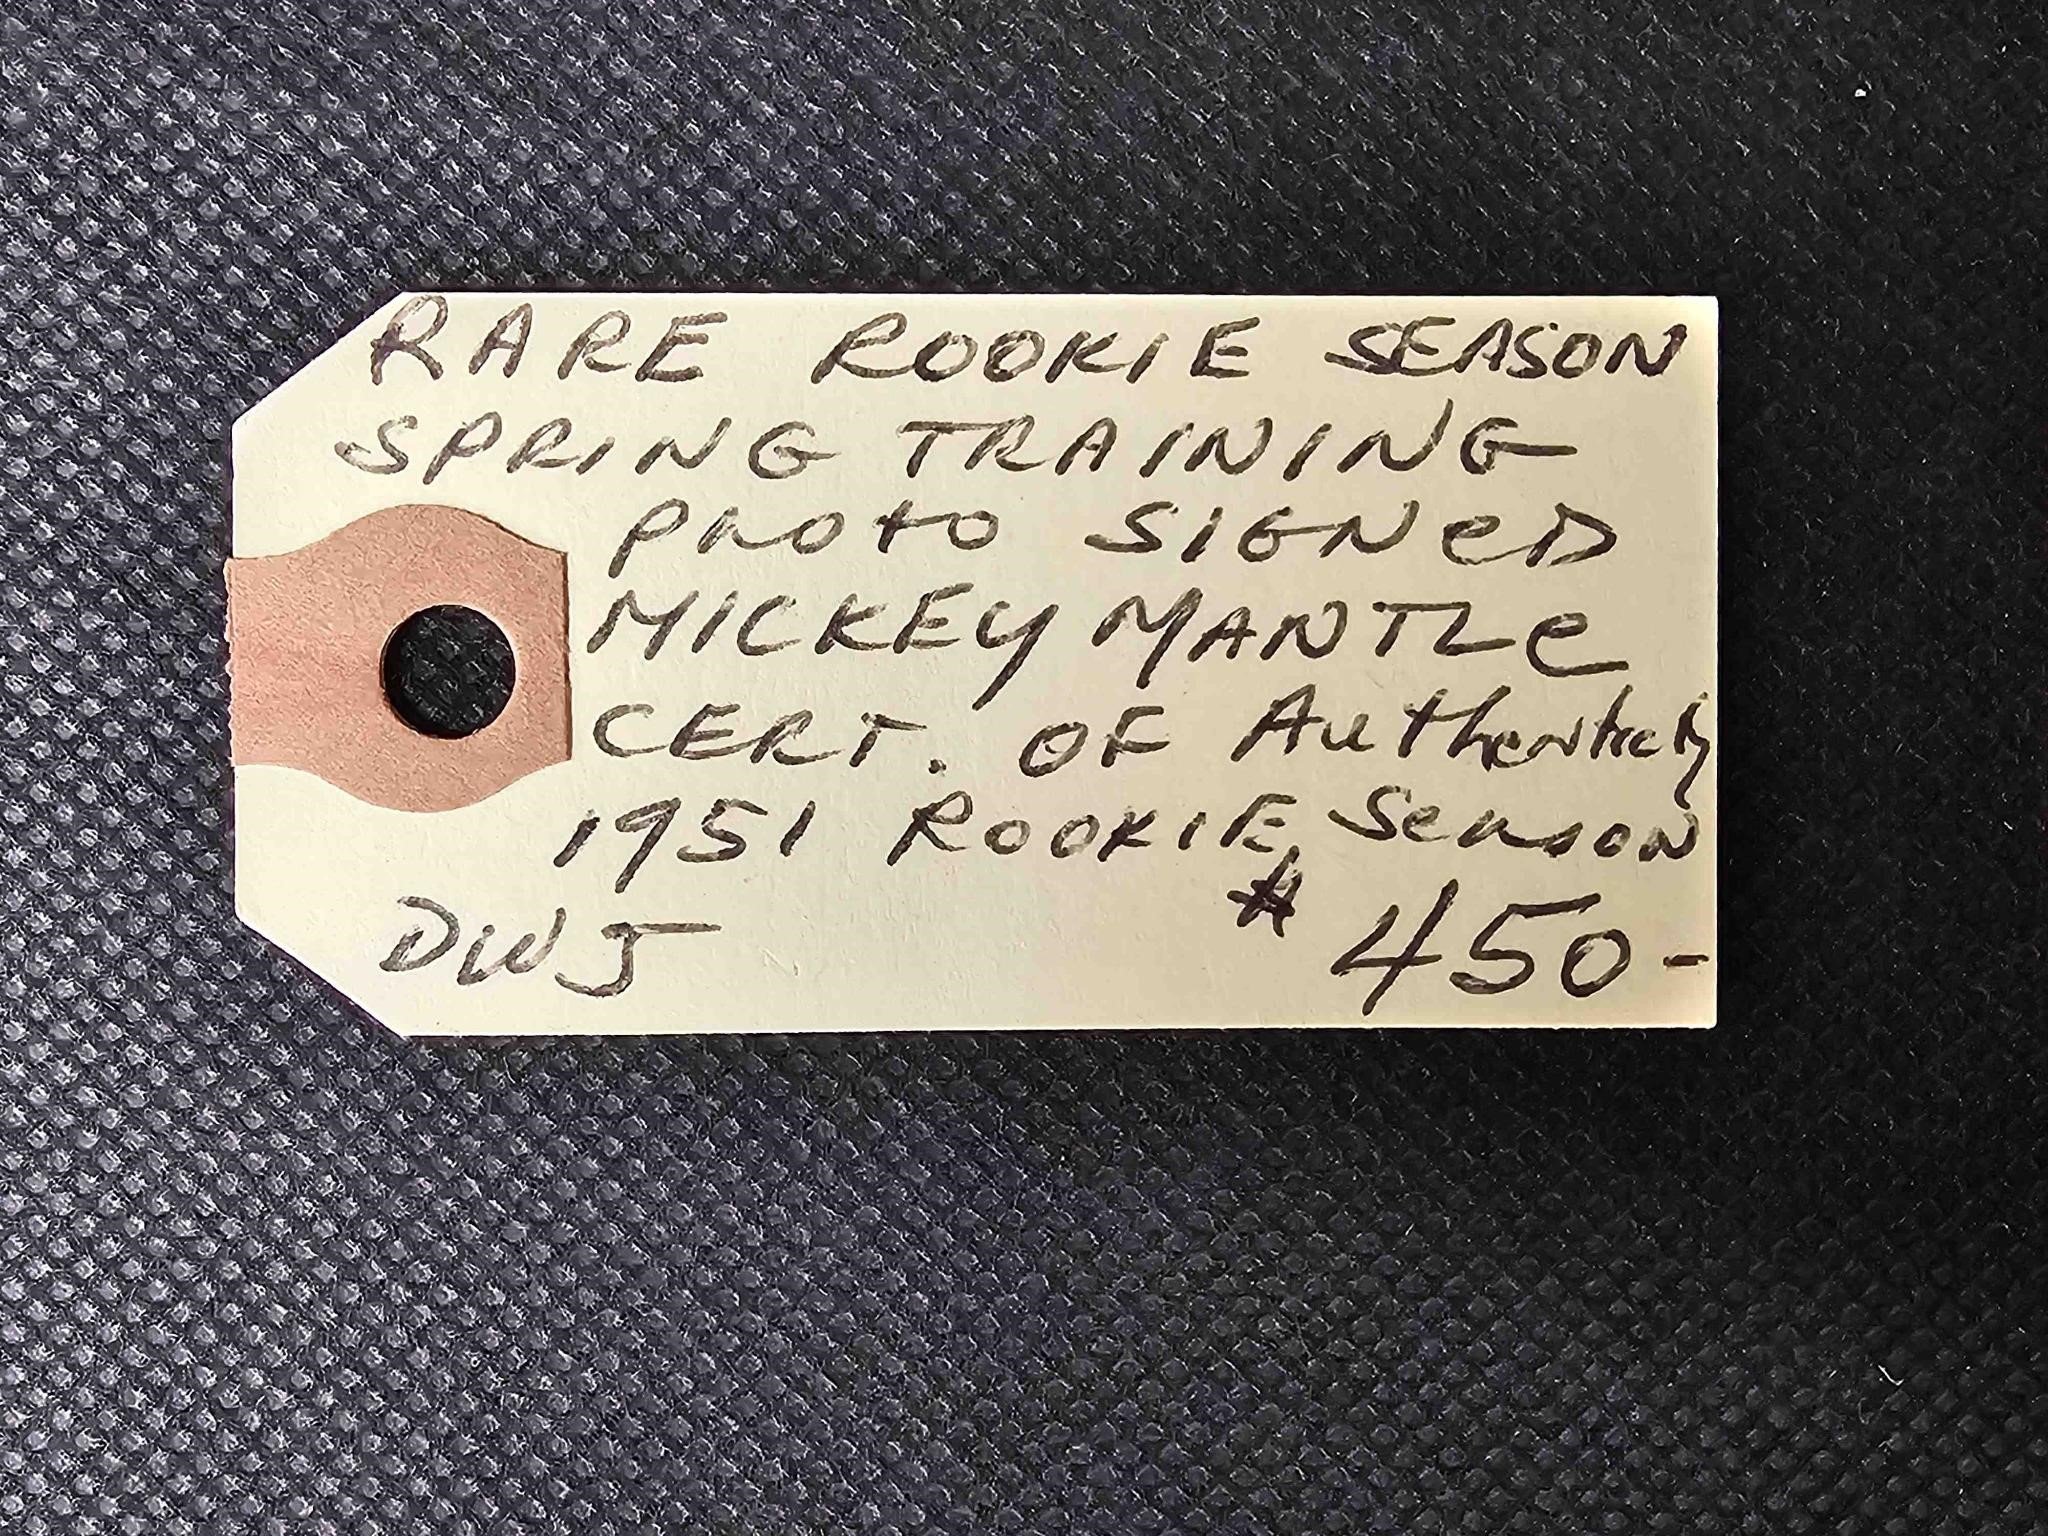 RARE ROOKIE SEASON
SPRING TRAINING
PHOTO SIGNED
MICKEY MANTLE
CERT. OF Authenticity
1951 ROOKIE SEASON
DWJ $450-